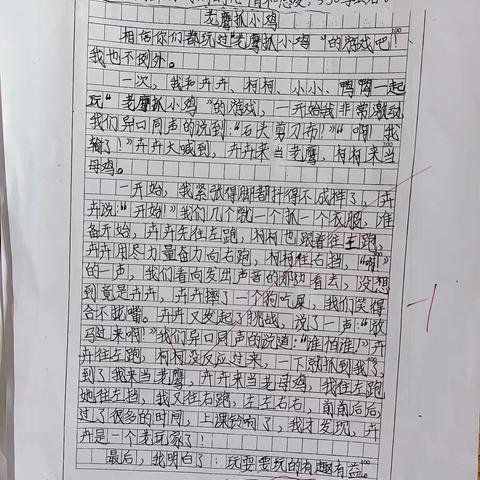 老鹰抓小鸡
相信你们都玩过“老鹰抓小鸡”的游戏吧！
我也不例外。
一次，我和卉卉、柯柯、小小、鸭鸭一起
玩“老鹰抓小鸡”的游戏，一开始我非常激动
我们异口同声的说到：“石头剪刀布！”“啊！我
输了！”卉卉大喊到，卉卉来当老鹰，柯柯来当
母鸡。
一开始，我紧张得脚都抖得不成样了，卉
卉说：“开始！”我们几个就一个抓一个衣服，准
备开始，卉卉先往左跑，柯柯也跟着往左跑，
卉卉用尽力量奋力向右跑，柯柯往右挡，“
的一声，我们看向发出声音的那边看去，没想
到竟是卉卉，卉卉摔了一个狗吃屎，我们笑得
合不拢嘴。卉卉又发起了挑战，说了一声：“放
马过来啊！”我们异口同声的说道：“谁怕谁！”卉
卉往左跑，柯柯没反应过来，一下就抓到我了，
到了我来当老鹰，卉卉来当老母鸡，我往左跑
她往左挡，我又往右跑，左左右右，前前后后，
过了很多的时间，上课铃响了，我才发现，卉
卉是一个老玩家了！
最后，我明白了：玩耍要玩的有趣有益。
-1